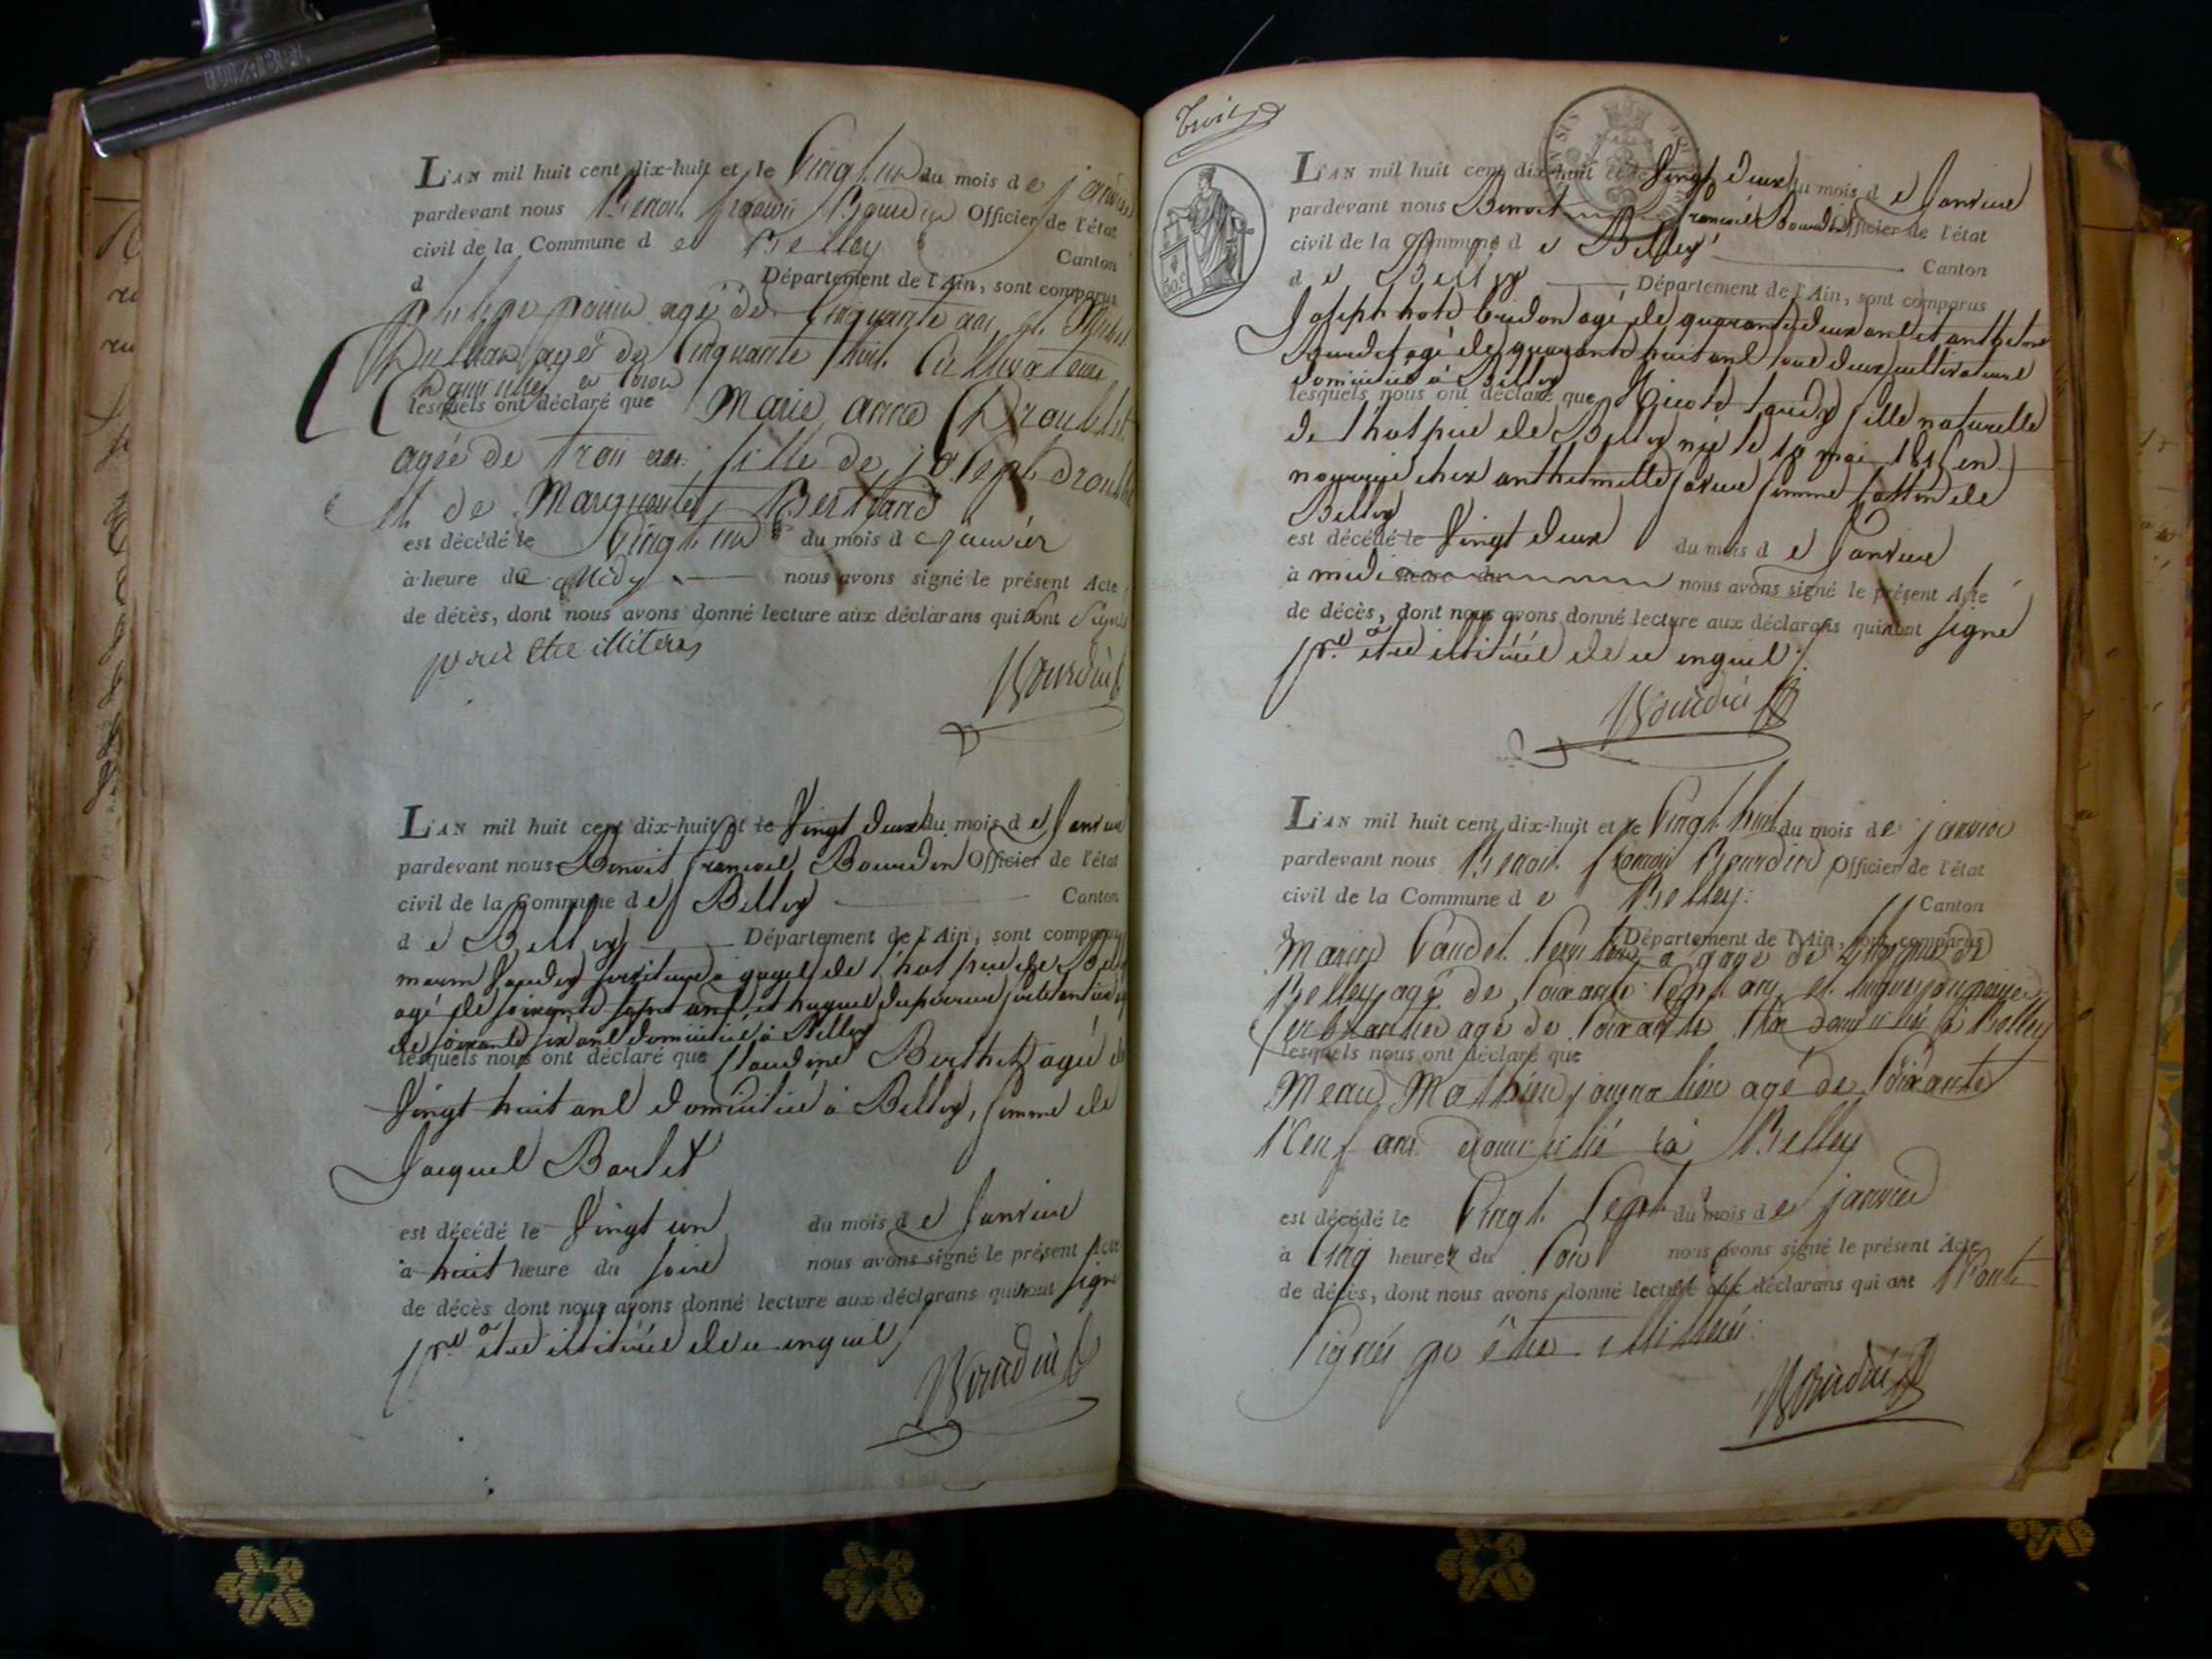 L'AN mil huit cent dix-huit et le Vingt un du mois de janvier
pardevant nous Benoit francois Bourdin Officier de l'état
civil de la Commune de Belley Canton
d Département de l'Ain, sont comparus
philipe agé de Cinquante ans et Michel
agé de Cinquante huit Cultivateurs
lesquels ont déclaré que Marie anne Droublet
agée de trois ans fille de joseph
et de Marguerite Bertrand
est décédé le Vingt un du mois de janvier
à heure de Midy nous avons signé le présent Acte
de décès, dont nous avons donné lecture aux déclarans qui n'ont Signé
pour etre illiteres
Bourdin
L'AN mil huit cent dix-huit et le Vingt deux du mois de Janvier
pardevant nous Benoit francois Bourdin Officier de l'état
civil de la Commune de Belley Canton
de Belley Département de l'Ain, sont comparus
à gages de l'hospice de
agé de soixante sept ans et hugues
de soixante six ans domicilié à Belley
lesquels nous ont déclaré que Claudine Berthet agée de
Vingt huit ans domiciliée à Belley, femme de
Jacques Barlet
est décédé le Vingt un du mois de Janvier
à huit heure du soir nous avons signé le présent Acte
de décès dont nous avons donné lecture aux déclarans qui n'ont signé
pr. etre illitérés de ce enquis
Bourdin
trois
L'AN mil huit cent dix-huit et le Vingt deux du mois de Janvier
pardevant nous Benoit francois Bourdin Officier de l'état
civil de la Commune de Belley Canton
de Belley Département de l'Ain, sont comparus
Joseph agé de quarante deux ans et anthelme
agé de quarante huit ans tous deux cultivateurs
domiciliés à Belley
lesquels nous ont déclaré que fille naturelle
de l'hospice de Belley née le 18 mai 1815 en
nourrice chez anthelmette femme de
Belley
est décédé le Vingt deux du mois de Janvier
à midi heure du nous avons signé le présent Acte
de décès, dont nous avons donné lecture aux déclarans qui n'ont signé
pr. etre illitérés de ce enquis
Bourdin
50 C
L'AN mil huit cent dix-huit et le Vingt huit du mois de janvier
pardevant nous Benoit francois Bourdin Officier de l'état
civil de la Commune de Belley Canton
d Département de l'Ain, sont comparus
Marin à gage de
Belley agé de soixante sept ans et hugues
agé de soixante six domicilié à Belley
lesquels nous ont déclaré que
Meau Mathieu journalier agé de soixante
Neuf ans domicilié à Belley
est décédé le Vingt Sept du mois de janvier
à Cinq heures du Soir nous avons signé le présent Acte
de décès, dont nous avons donné lecture aux déclarans qui ont N'ont
Signés pr être illitérés
Bourdin